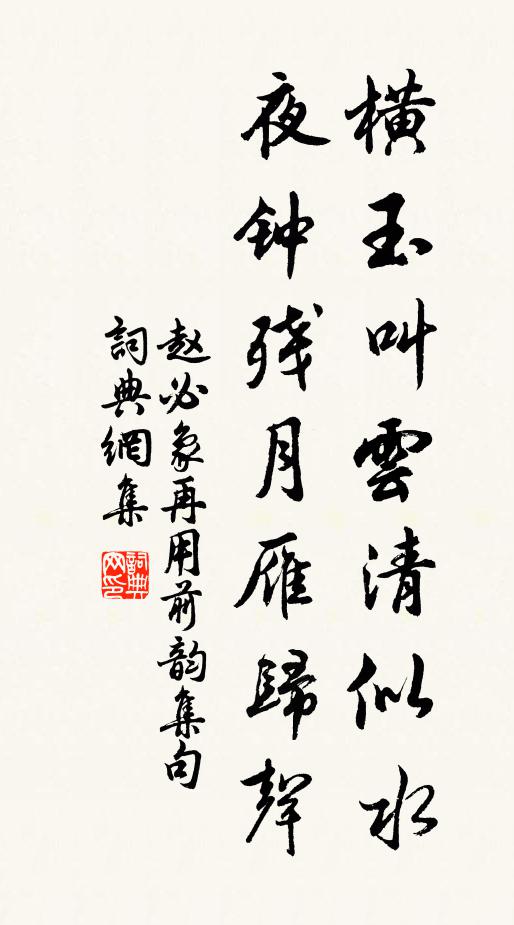 横玉叫雲清似水
夜钟残月雁歸聲
赵必象再用前韵集句
詞典網集
詞典
网印